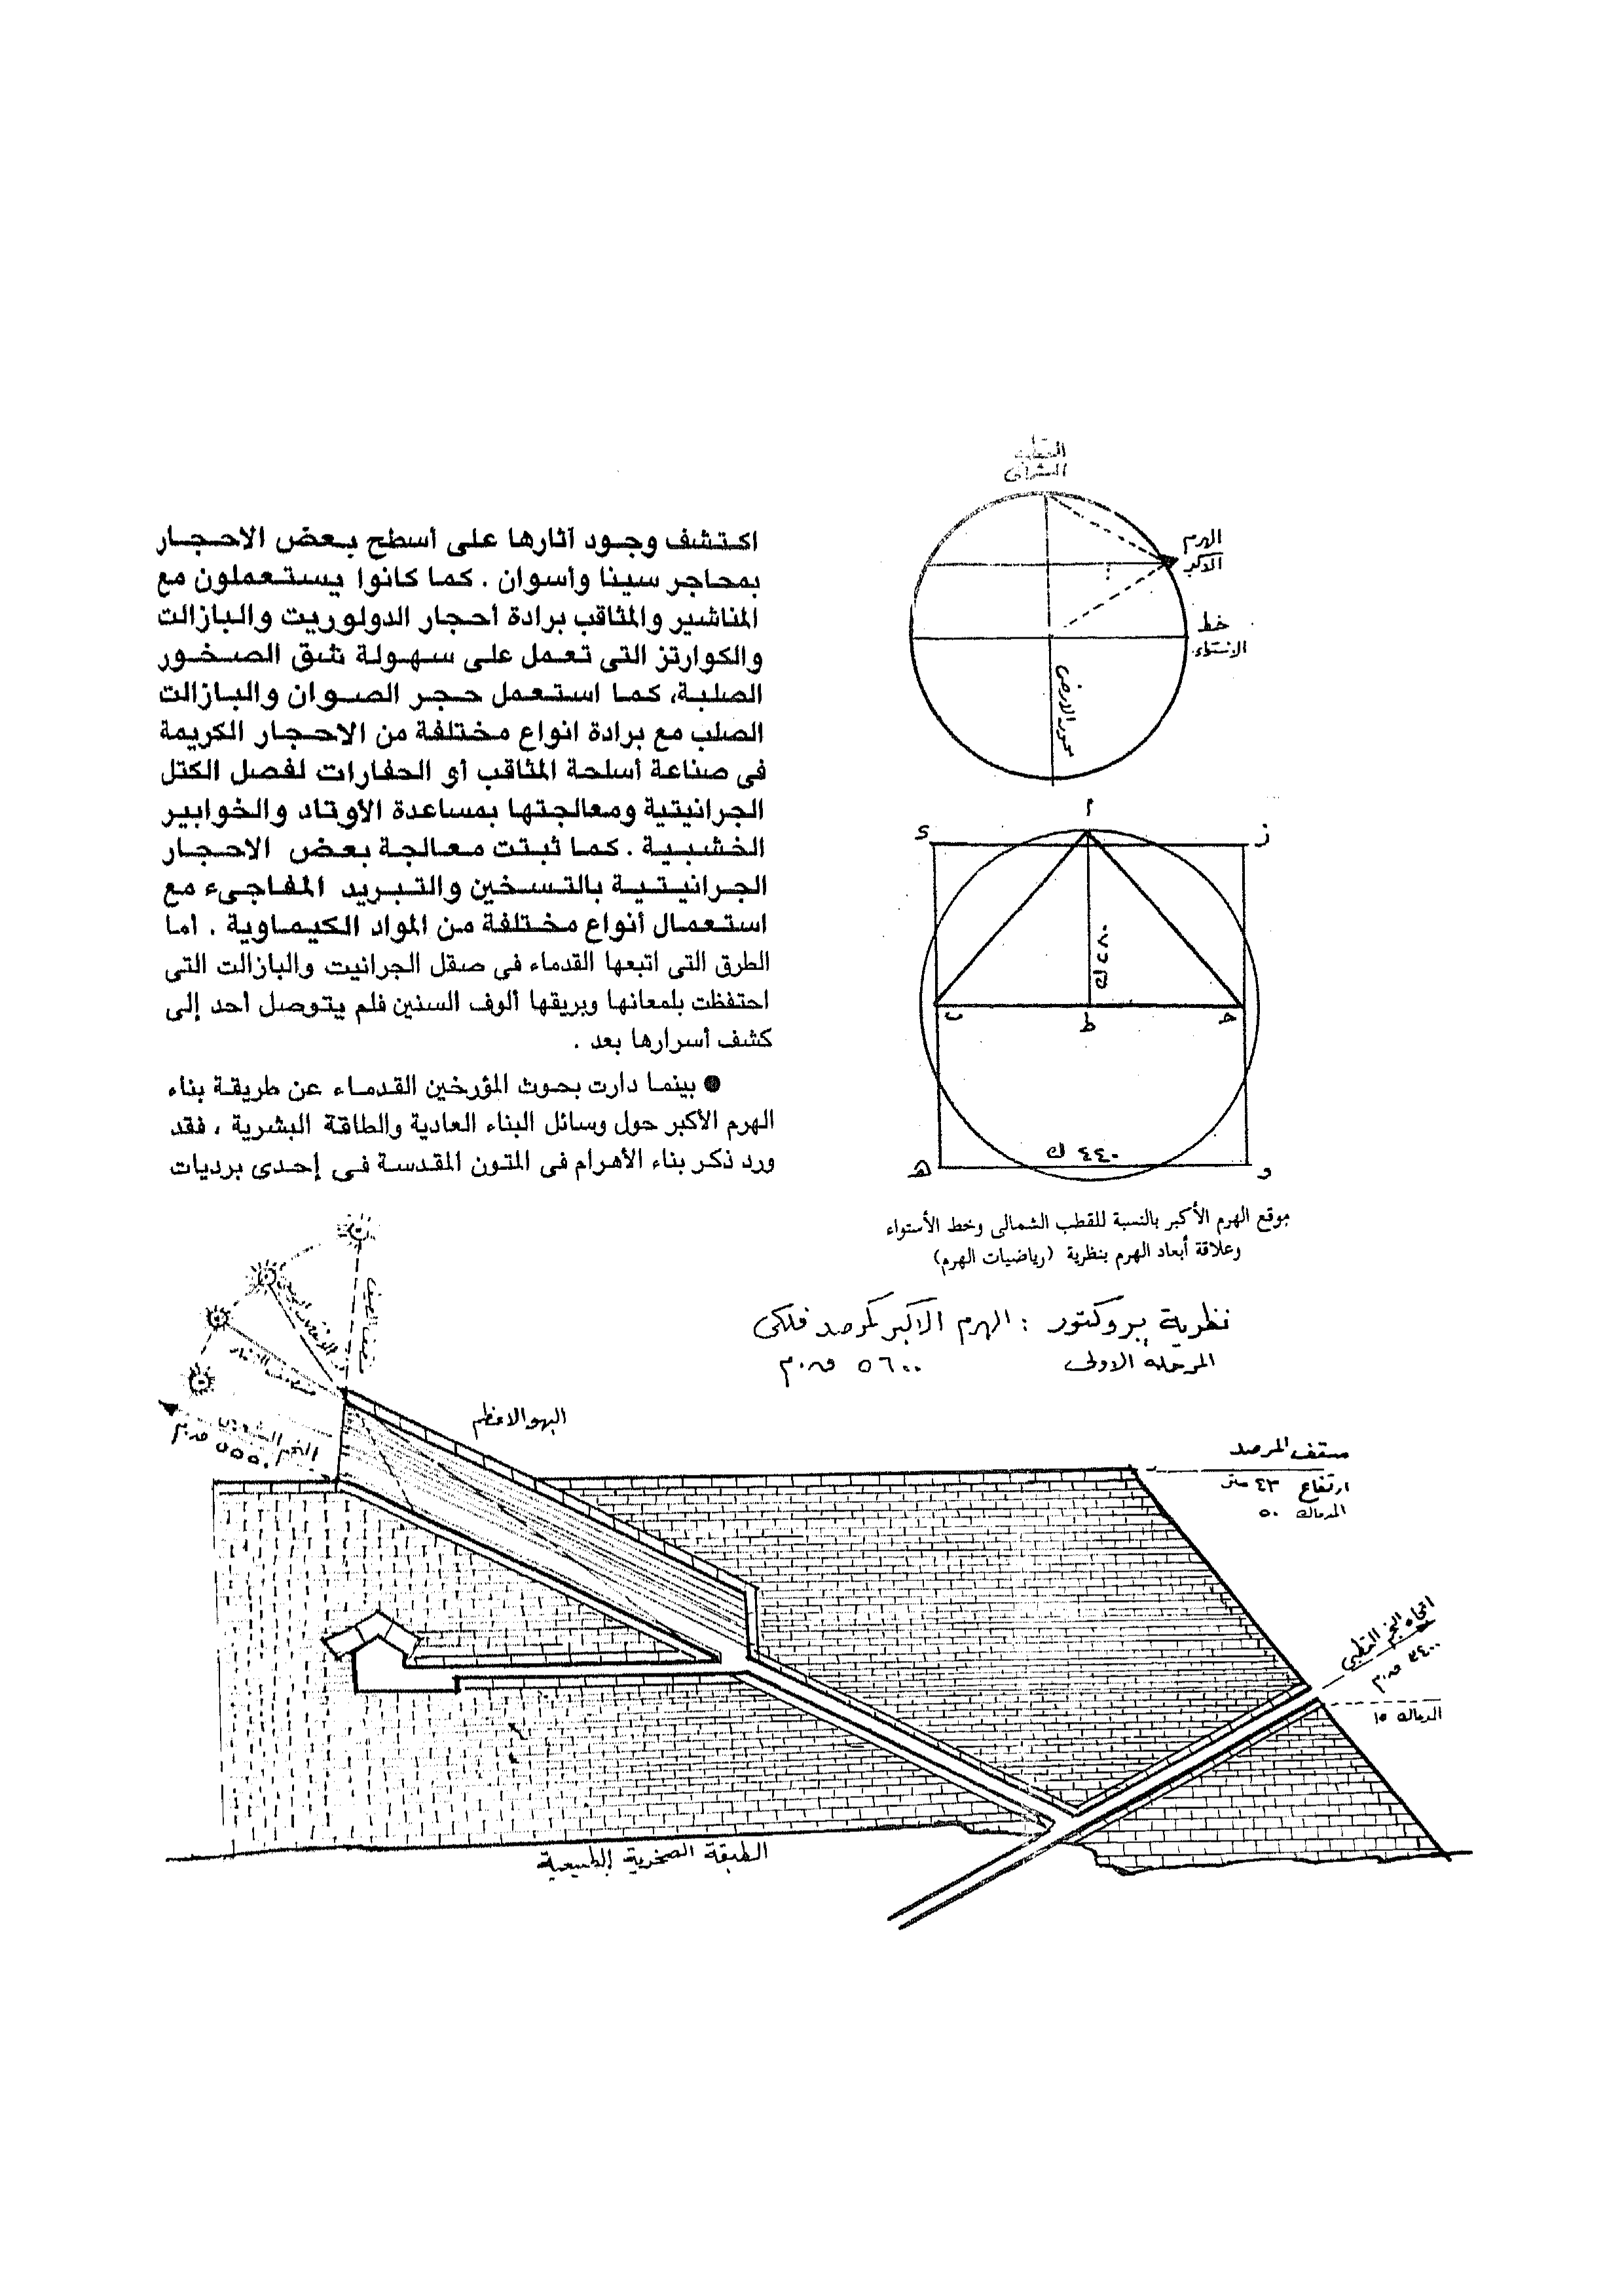 اكتشف وجود آثارها على أسطح بعض الاحجار
بمحاجر سينا وأسوان . كما كانوا يستعملون مع
المناشير والمثاقب برادة أحجار الدولوريت والبازالت
والكوارتز التى تعمل على سهولة شق الصخور
الصلبة، كما استعمل حجر الصوان والبازالت
الصلب مع برادة انواع مختلفة من الاحجار الكريمة
فى صناعة أسلحة المثاقب أو الحفارات لفصل الكتل
الجرانيتية ومعالجتها بمساعدة الأوتاد والخوابير
الخشبية . كما ثبتت معالجة بعض الاحجار
الجرانيتية بالتسخين والتبريد المفاجىء مع
استعمال أنواع مختلفة من المواد الكيماوية . اما
الطرق التى اتبعها القدماء فى صقل الجرانيت والبازالت التى
احتفظت بلمعانها وبريقها ألوف السنين فلم يتوصل أحد إلى
كشف أسرارها بعد .
● بينما دارت بحوث المؤرخين القدماء عن طريقة بناء
الهرم الأكبر حول وسائل البناء العادية والطاقة البشرية ، فقد
ورد ذكر بناء الأهرام فى المتون المقدسة فى إحدى برديات
الهرم
الاكبر
خط
الاستواء
محور الارض
أ
ز
د
٢٨٠ ك
ب
ط
ح
٤٤٠ ك
ه
و
موقع الهرم الأكبر بالنسبة للقطب الشمالى وخط الأستواء
وعلاقة أبعاد الهرم بنظرية (رياضيات الهرم)
نظرية بروكتور : الهرم الاكبر كمرصد فلكى
المرحلة الاولى ٥٦٠٠ ق.م
منتصف الصيف
البهو الاعظم
سقف المرصد
ارتفاع ٤٣ متر
المدماك ٥٠
اتجاه النجم القطبى
٣٤٠٠ ق.م
المدماك ١٥
الطبقة الصخرية الطبيعية